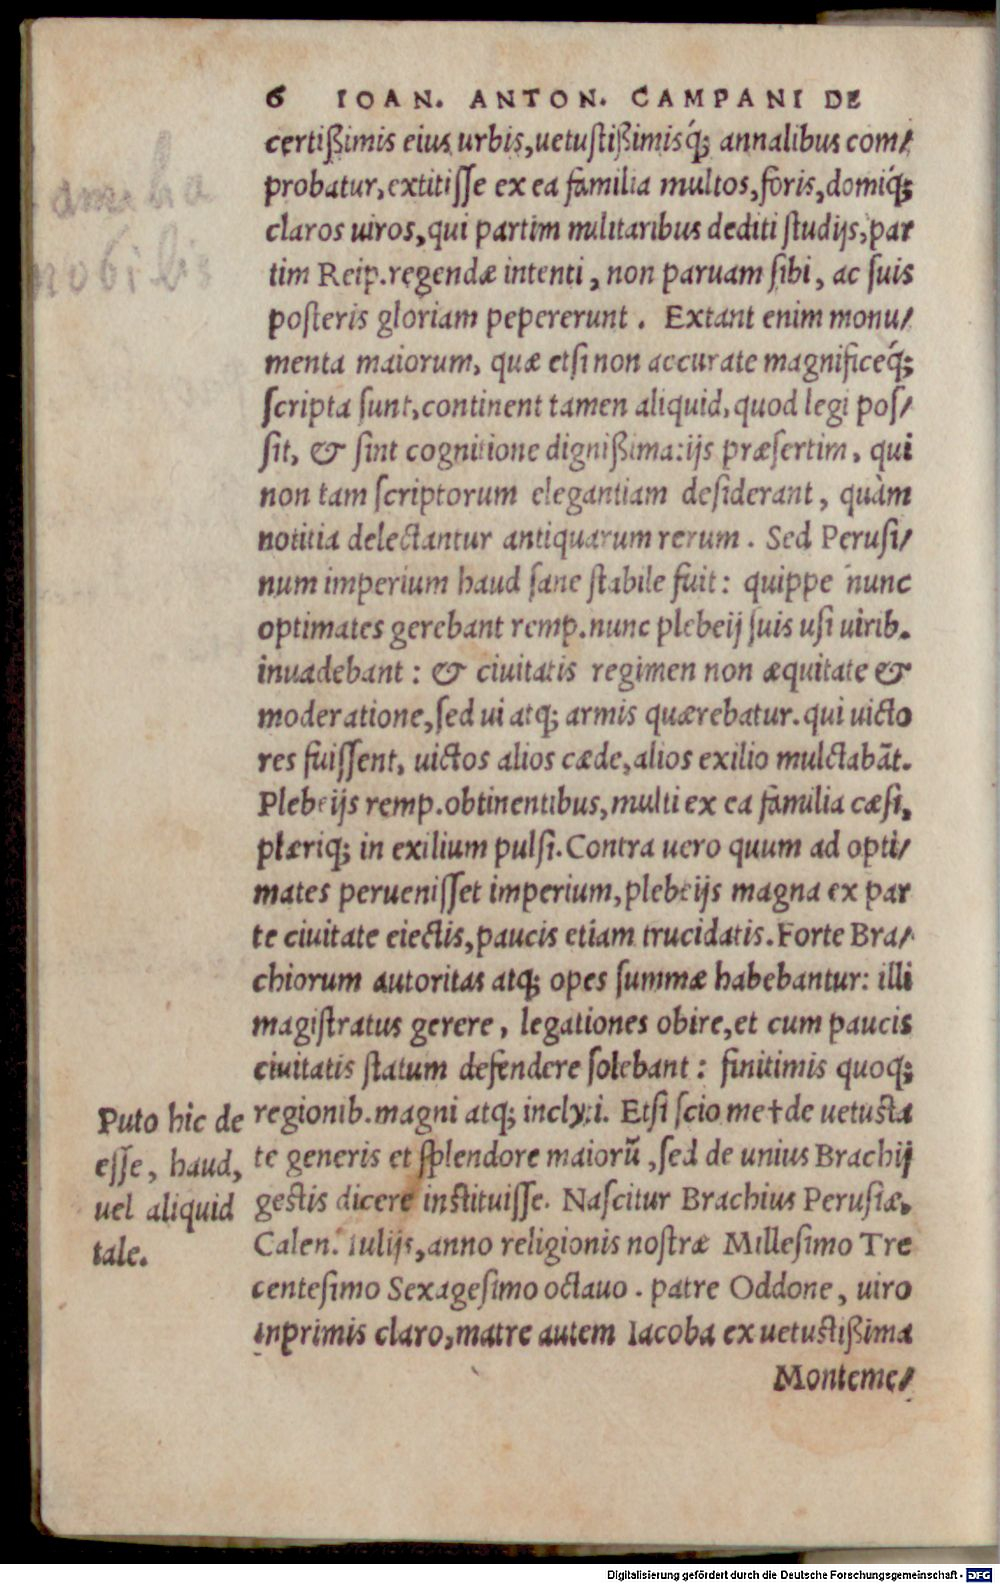 6 IOAN. ANTON. CAMPANI DE
certißimis eius urbis, uetustißimisq́; annalibus com/
probatur, extitiſſe ex ea familia multos, foris, domiq́;
claros uiros, qui partim militaribus dediti ſtudijs, par
tim Reip. regendæ intenti, non paruam ſibi, ac ſuis
poſteris gloriam pepererunt. Extant enim monu/
menta maiorum, quæ etſi non accurate magnificeq́;
ſcripta ſunt, continent tamen aliquid, quod legi poſ/
ſit, & ſint cognitione dignißima: ijs præſertim, qui
non tam ſcriptorum elegantiam deſiderant, quàm
notitia delectantur antiquarum rerum. Sed Peruſi/
num imperium haud ſane ſtabile fuit: quippe nunc
optimates gerebant remp. nunc plebeij ſuis uſi uirib.
inuadebant: & ciuitatis regimen non æquitate &
moderatione, ſed ui atq; armis quærebatur. qui uicto
res fuiſſent, uictos alios cæde, alios exilio mulctabāt.
Plebeijs remp. obtinentibus, multi ex ea familia cæſi,
plæriq; in exilium pulſi. Contra uero quum ad opti/
mates perueniſſet imperium, plebeijs magna ex par
te ciuitate eiectis, paucis etiam trucidatis. Forte Bra/
chiorum autoritas atq; opes ſummæ habebantur: illi
magiſtratus gerere, legationes obire, et cum paucis
ciuitatis ſtatum defendere ſolebant: finitimis quoq;
regionib. magni atq; inclyti. Etſi ſcio me † de uetuſta
te generis et ſplendore maiorū, ſed de unius Brachij
geſtis dicere inſtituiſſe. Naſcitur Brachius Peruſiæ,
Calen. Iulijs, anno religionis noſtræ Milleſimo Tre
centeſimo Sexageſimo octauo. patre Oddone, uiro
inprimis claro, matre autem Iacoba ex uetuſtißima
Monteme/
Puto hic de
eſſe, haud,
uel aliquid
tale.
nobilis
Digitalisierung gefördert durch die Deutsche Forschungsgemeinschaft - DFG